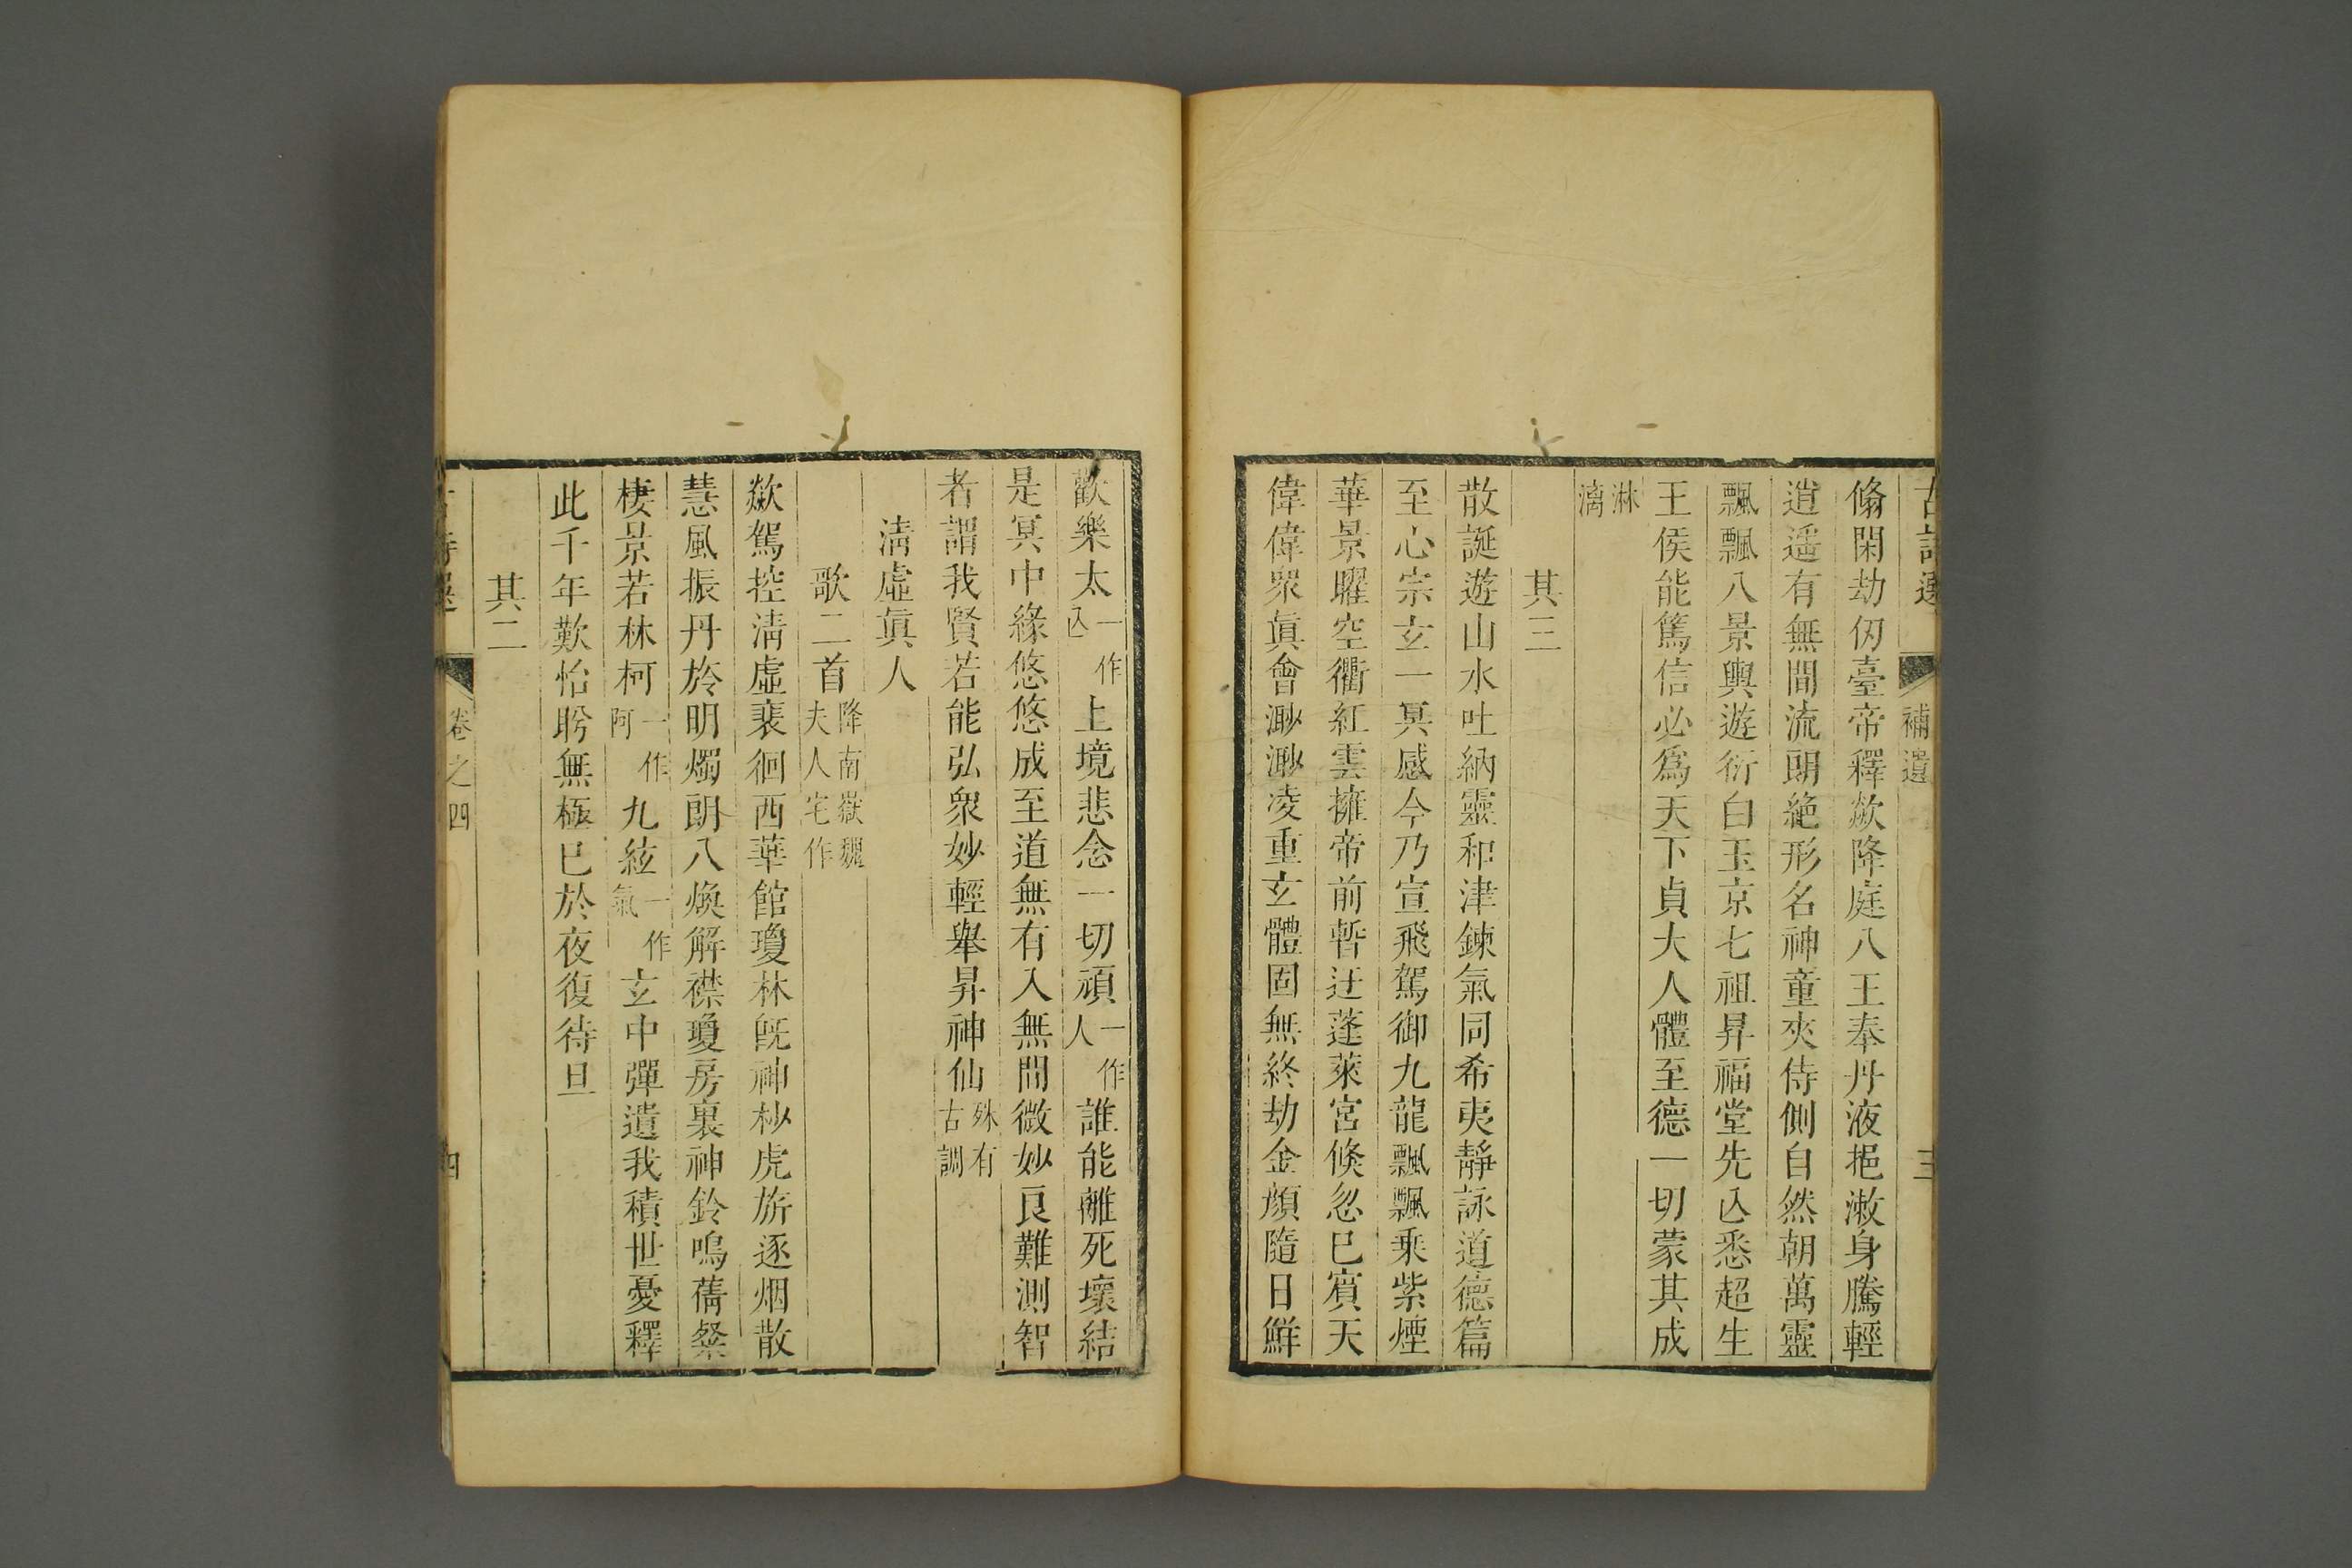 古詩選 補遺 三
翛閑劫仭臺帝釋歘降庭八王奉丹液挹漱身騰輕
逍遥有無間流朗絶形名神童夾侍側自然朝萬靈
飄飄八景輿遊衍白玉京七祖昇福堂先亾悉超生
王侯能篤信必爲天下貞大人體至德一切蒙其成
淋漓
其三
散誕遊山水吐納靈和津鍊氣同希夷靜詠道德篇
至心宗玄一冥感今乃宣飛駕御九龍飄飄乘紫煙
華景曜空衢紅雲擁帝前暫迂蓬萊宮倏忽已賓天
偉偉衆眞會渺渺凌重玄體固無終劫金顔隨日鮮
歡樂太一作亾上境悲念一切頑一作人誰能離死壞結
是冥中緣悠悠成至道無有入無間微妙良難測智
者謂我賢若能弘衆妙輕舉昇神仙殊有古調
淸虛眞人
歌二首降南嶽魏夫人宅作
歘駕控淸虛裵徊西華館瓊林旣神杪虎旂逐烟散
慧風振丹旍明燭朗八煥解襟瓊房裏神鈴鳴蒨粲
棲景若林柯一作阿九絃一作氣玄中彈遺我積世憂釋
此千年歎怡盻無極已於夜復待旦
其二
古詩選 卷之四 四